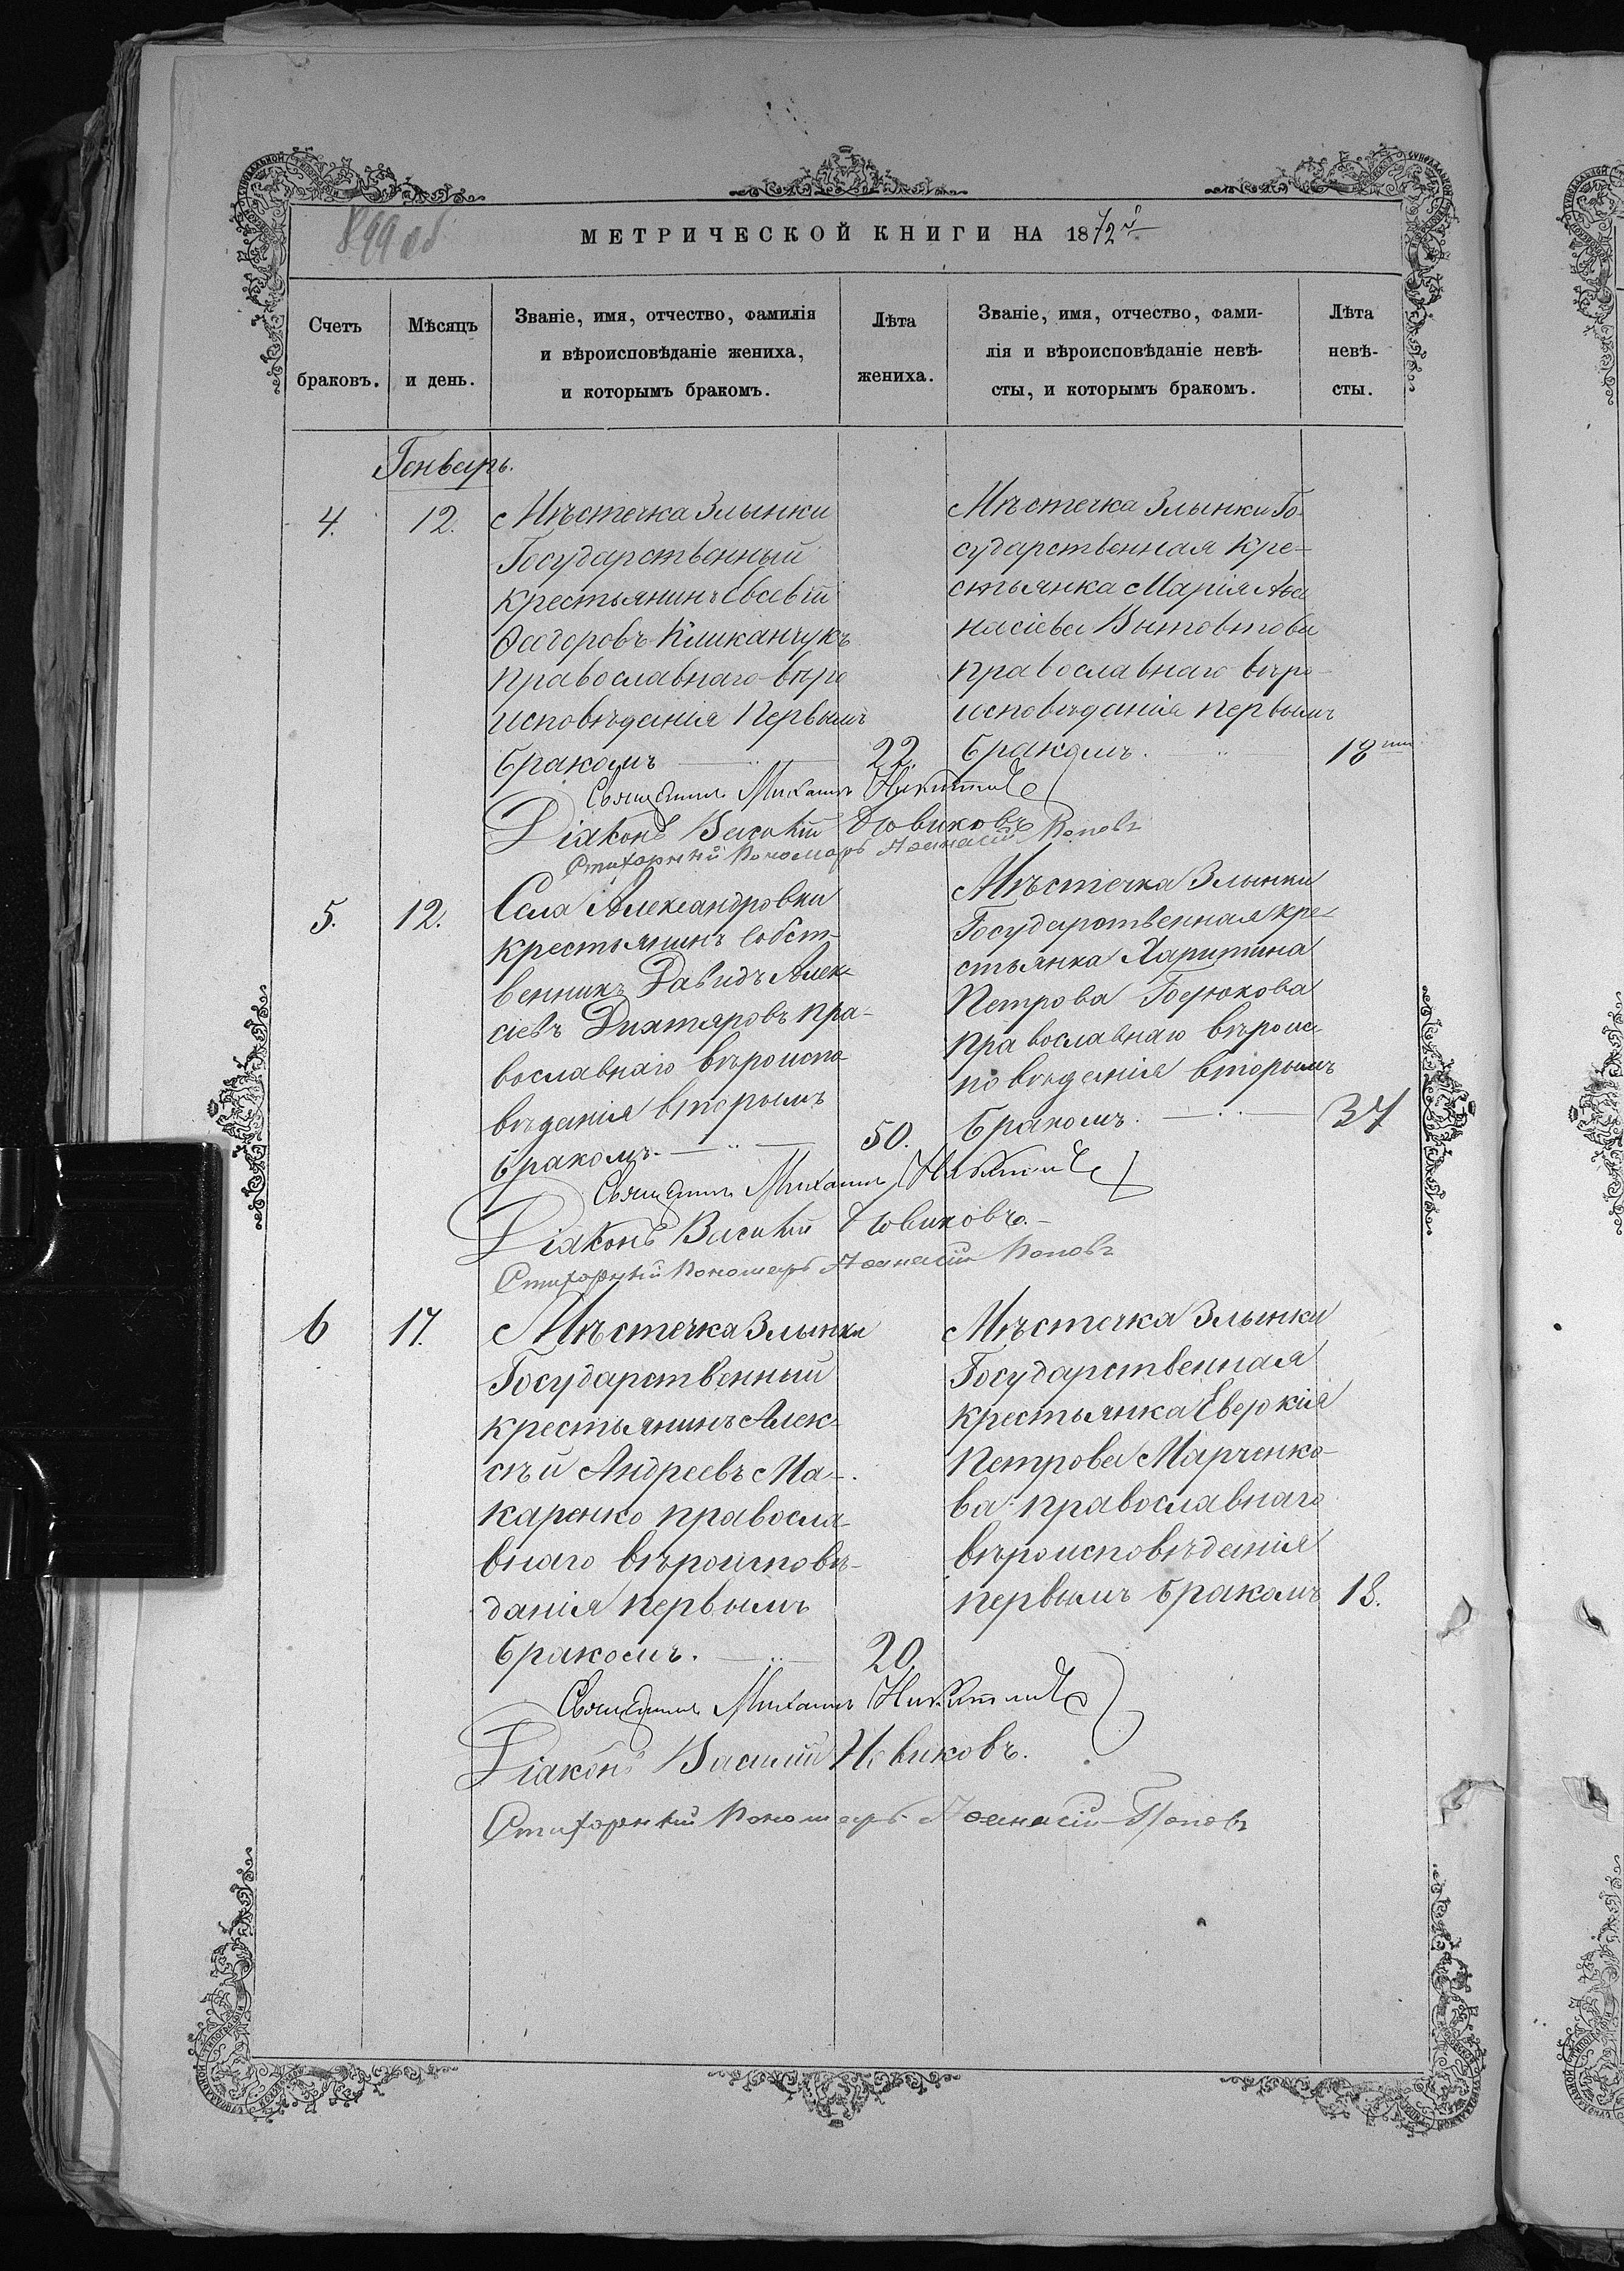 899 об
МЕТРИЧЕСКОЙ КНИГИ НА 1872й
Счетъ браковъ.
Мѣсяцъ и день.
Званіе, имя, отчество, фамилія
и вѣроисповѣданіе жениха,
и которымъ бракомъ.
Лѣта
жениха.
Званіе, имя, отчество, фами-
лія и вѣроисповѣданіе невѣ-
сты, и которымъ бракомъ.
Лѣта
невѣ-
сты.
Генварь.
4. 12.
Мѣстечка Злынки
Государственный
крестьянинъ Евсевій
Ѳедоровъ Кишканчукъ
православнаго вѣро
исповѣданія первымъ
бракомъ 22.
Мѣстечка Злынки Го-
сударственная кре-
стьянка Марія Аѳа
насіева Вытовтова
православнаго вѣро-
исповѣданія первымъ
бракомъ. 18
Священникъ Михаилъ
Діаконъ Василій Новиковъ
Стихарный Пономарь Аѳанасій Поповъ
5. 12.
Села Александровки
крестьянинъ собст-
венникъ Давидъ Алек-
сіевъ Дихтяровъ пра-
вославнаго вѣроиспо-
вѣданія вторымъ
бракомъ. 50.
Мѣстечка Злынки
Государственная кре-
стьянка Харитина
Петрова Бердюкова
православнаго вѣроис-
повѣданія вторымъ
бракомъ. 37
Священникъ Михаилъ
Діаконъ Василій Новиковъ.
Стихарный Пономарь Аѳанасій Поповъ
6 17.
Мѣстечка Злынки
Государственный
крестьянинъ Алек-
сѣй Андреевъ Ма-
каренко правосла-
внаго вѣроисповѣ-
данія первымъ
бракомъ. 20.
Мѣстечка Злынки
Государственная
крестьянка Еверкія
Петрова Марченко-
ва православнаго
вѣроисповѣданія
первымъ бракомъ 18.
Священникъ Михаилъ
Діаконъ Василій Новиковъ.
Стихарный Пономарь Аѳанасій Поповъ